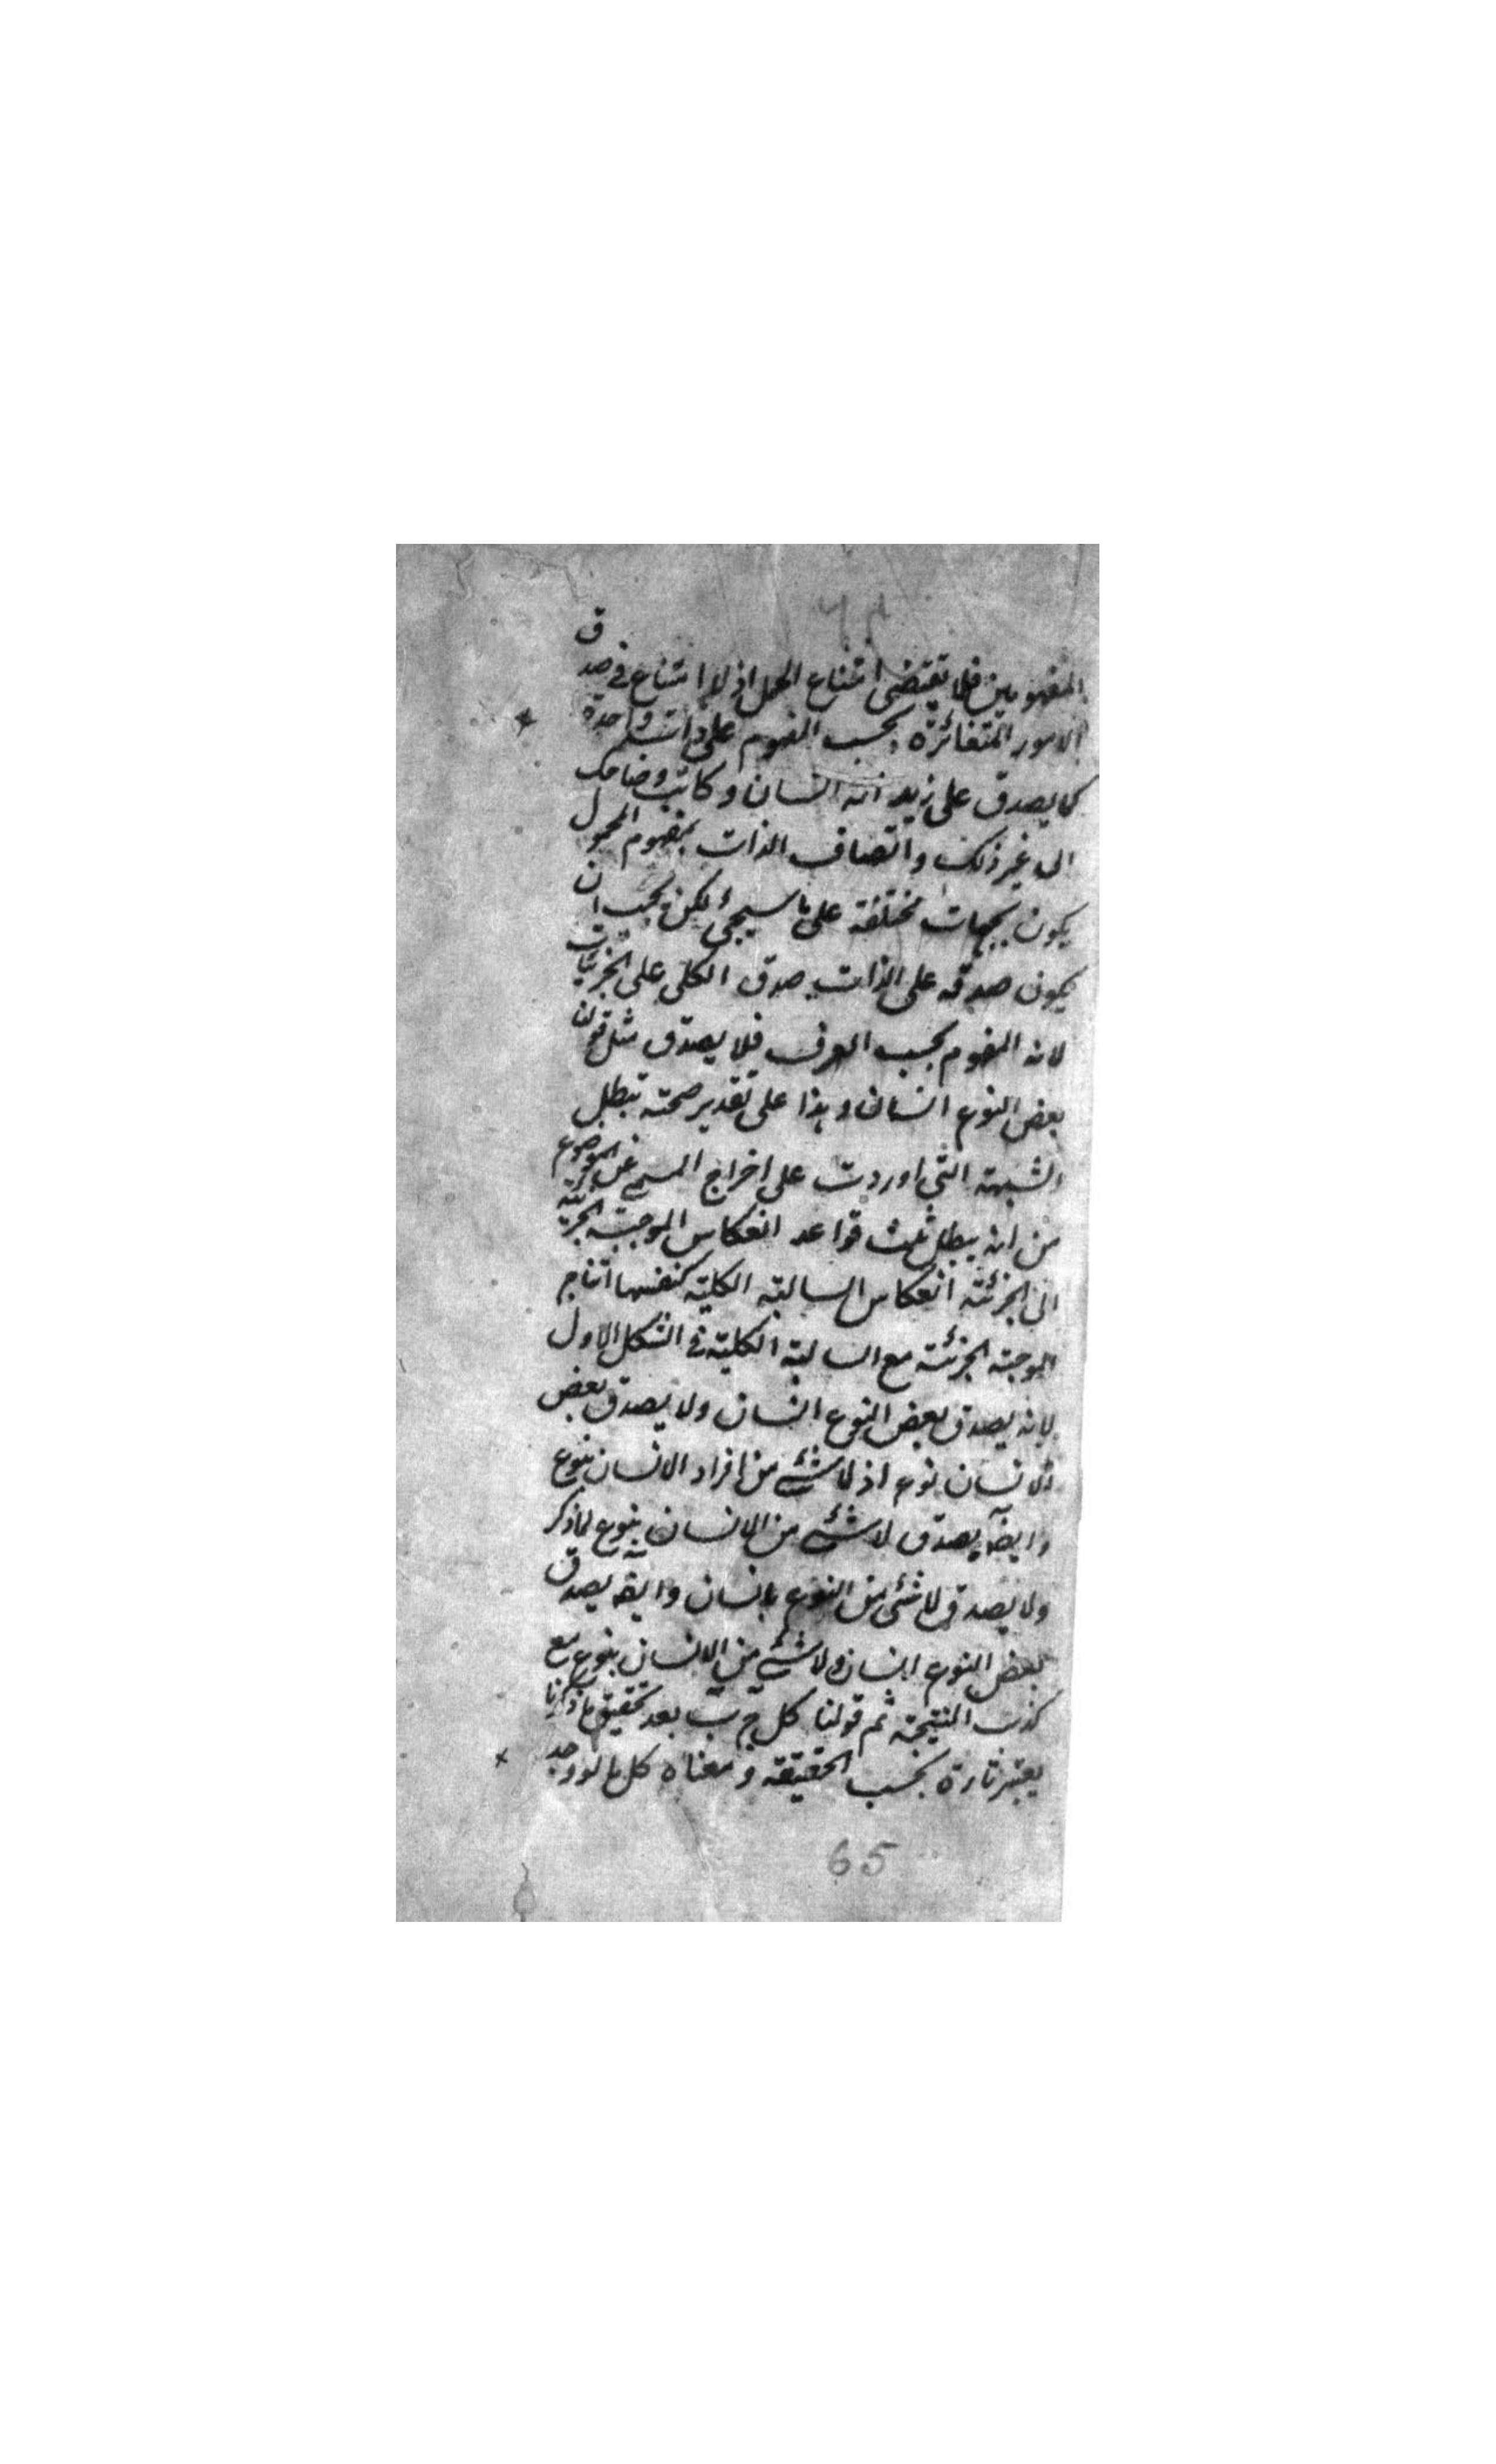 المفهومين فلا تقتضى امتناع الحمل اذ لا امتناع فى صدق
الامور المتغائرة بحسب المفهوم على ذات واحدة
كما يصدق على زيد انه انسان وكاتب وضاحك
الى غير ذلك واتصاف الذات بمفهوم المحمول
يكون بجهات مختلفة على ما سيجئ لكن يجب ان
يكون صدقه على الذات صدق الكلى على الجزئيات
لانه المفهوم بحسب العرف فلا يصدق مثل قولنا
بعض النوع انسان وهذا على تقدير صحته تبطل
الشبهة التى اوردت على اخراج المسمى عن الموضوع
من انه يبطل ثلث قواعد انعكاس الموجبة الجزئية
الى الجزئية انعكاس السالبة الكلية كنفسها انتاج
الموجبة الجزئية مع السالبة الكلية فى الشكل الاول
لانه يصدق بعض النوع انسان ولا يصدق بعض
الانسان نوع اذ لا شئ من افراد الانسان بنوع
وايضا يصدق لا شئ من الانسان بنوع لما ذكر
ولا يصدق لا شئ من النوع بانسان وايضه يصدق
بعض النوع انسان ولا شئ من الانسان بنوع مع
كذب النتيجة ثم قولنا كل ج ب بعد تحقيق ما ذكرنا
يعتبر تارة بحسب الحقيقة ومعناه كل ما لو وجد
65